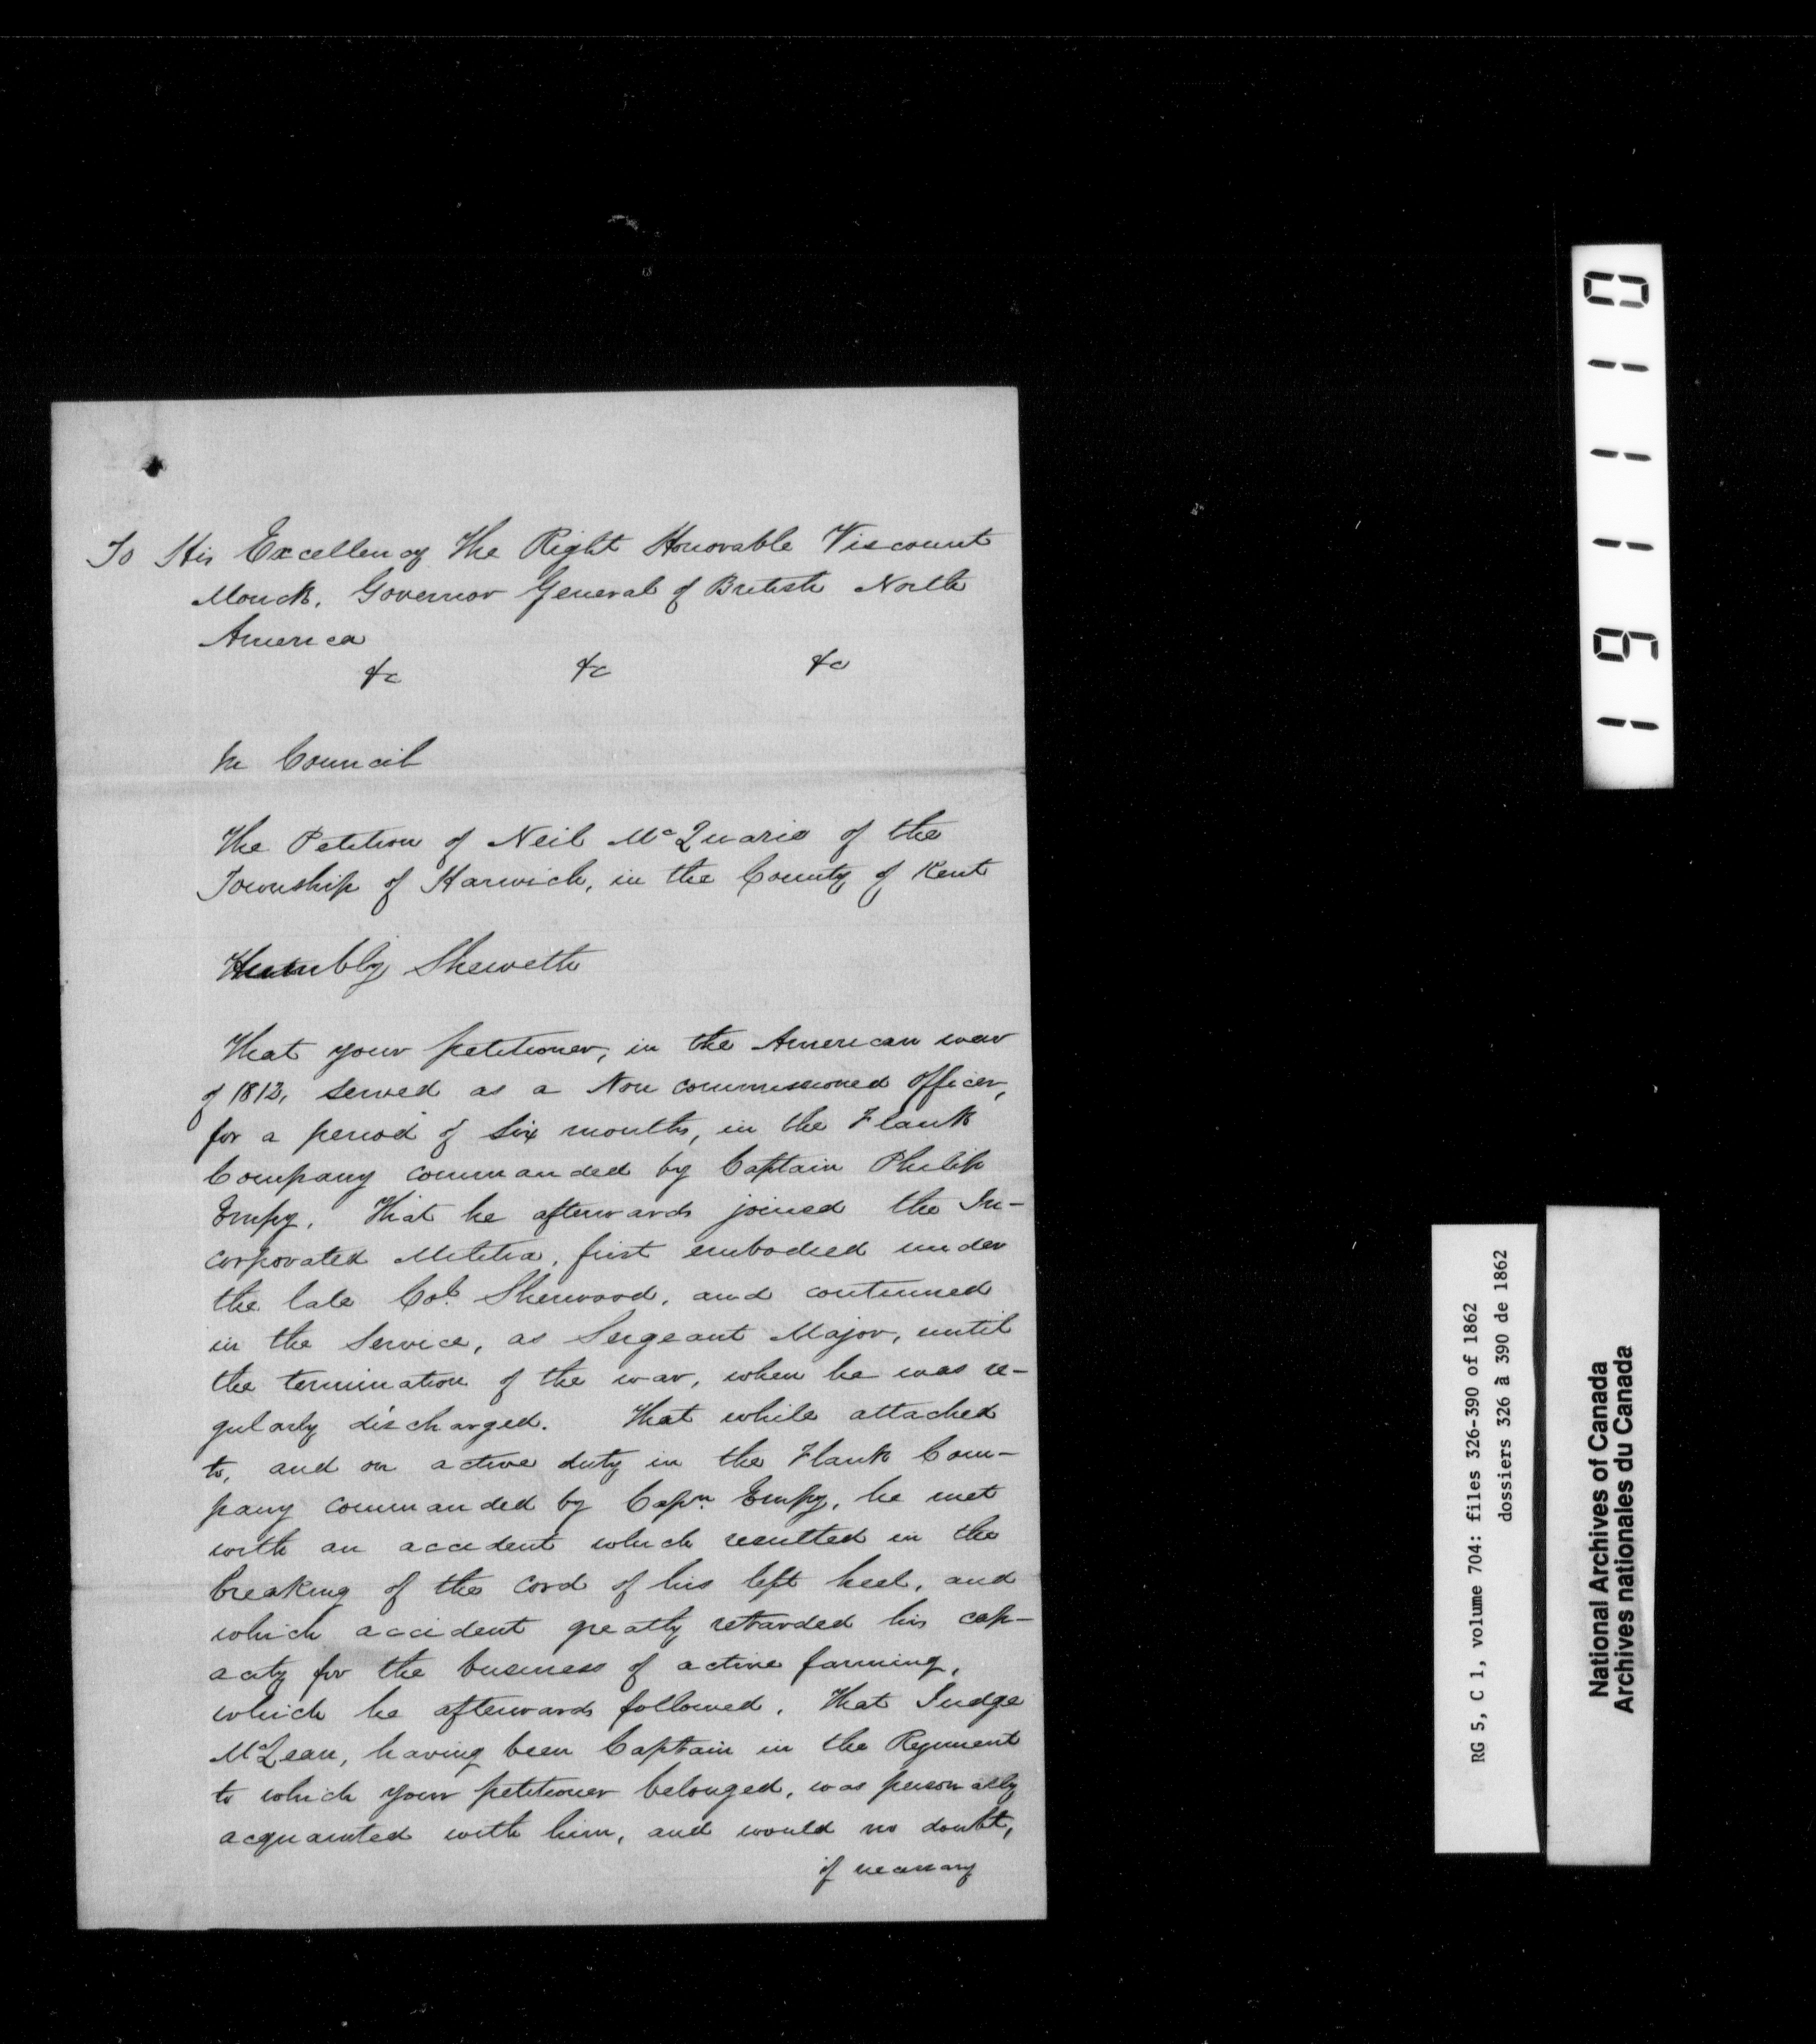 To His Excellency The Right Honorable Viscount
Monck, Governor General of British North
America
&c &c &c
In Council
The Petition of Neil McQuarie of the
Township of Harwich, in the County of Kent
Humbly Sheweth
That your petitioner, in the American war
of 1812, served as a Non commissioned Officer,
for a period of six months, in the Flank
Company commanded by Captain Philip
Empy. That he afterwards joined the In-
corporated Militia, first embodied under
the late Col. Sherwood, and continued
in the Service, as Sergeant Major, until
the termination of the war, when he was re-
gularly discharged. That while attached
to, and on active duty in the Flank Com-
pany commanded by Capn. Empy, he met
with an accident which resulted in the
breaking of the cord of his left heel, and
which accident greatly retarded his cap-
acity for the business of active farming,
which he afterwards followed. That Judge
McLean, having been Captain in the Regiment
to which your petitioner belonged, was personally
acquainted with him, and would no doubt,
if necessary
191110
RG 5, C 1, volume 704: files 326-390 of 1862
dossiers 326 à 390 de 1862
National Archives of Canada
Archives nationales du Canada